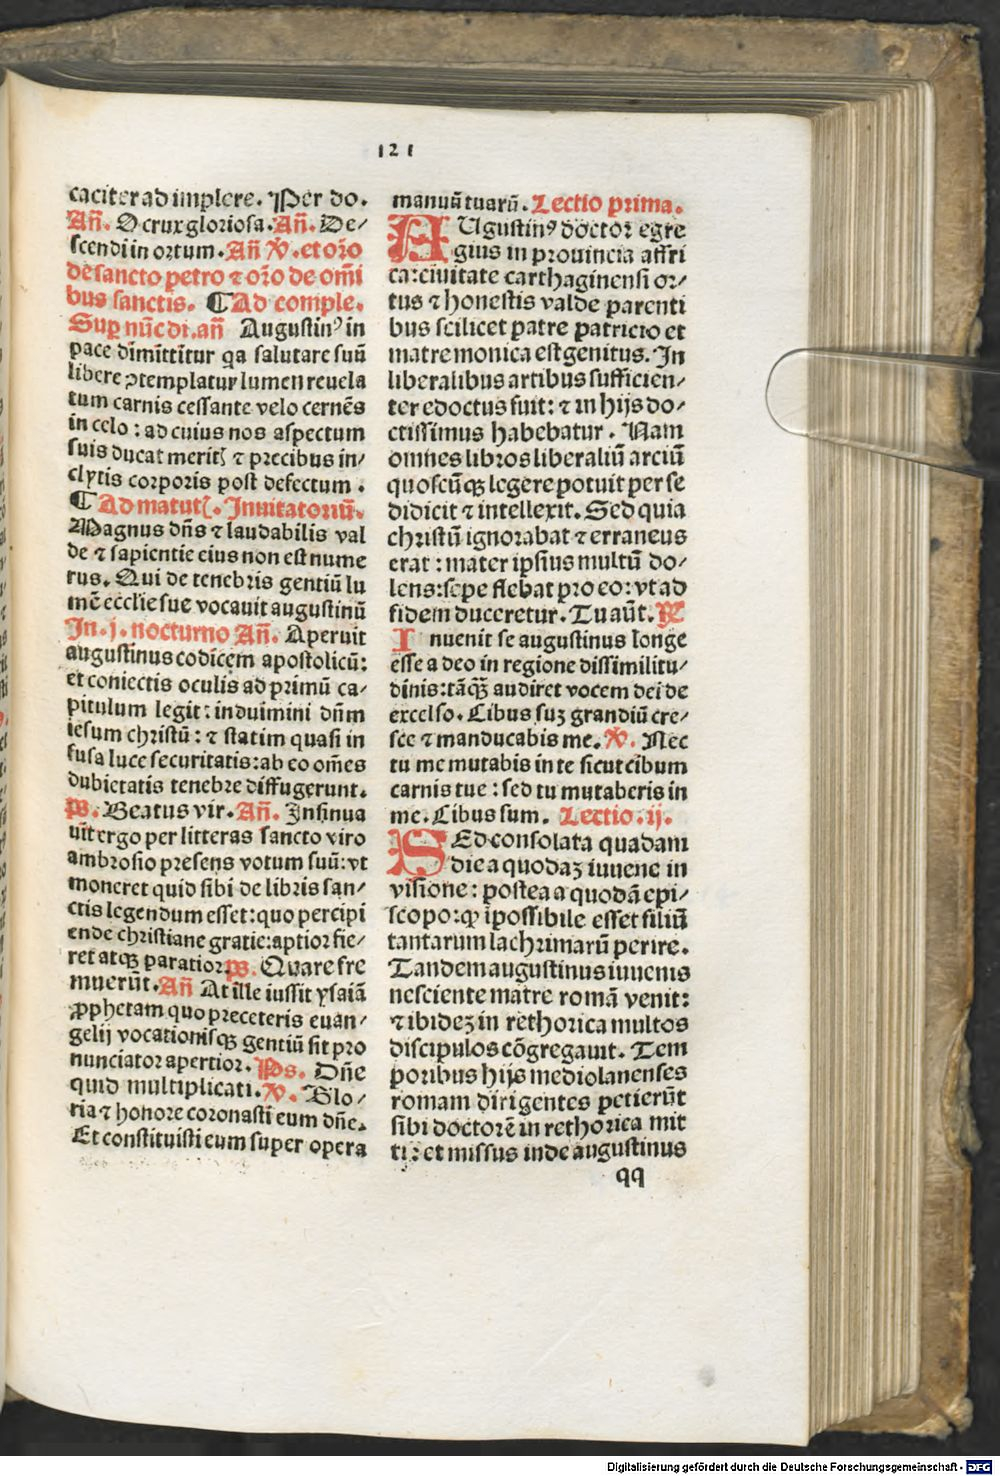 121
caciter ad implere. Per do.
Añ. O crux gloriosa. Añ. De⸗
scendi in ortum. Añ ℣. et oro
de sancto petro ⁊ oro de omi
bus sanctis. ¶ Ad comple.
Sup nūc di. añ Augustinꝰ in
pace dimittitur qa salutare suū
libere ꝯtemplatur lumen reuela
tum carnis cessante velo cernēs
in celo : ad cuius nos aspectum
suis ducat meritꝭ ⁊ precibus in⸗
clytis corporis post defectum .
¶ Ad matutꝭ. Inuitatoriū.
Magnus dñs ⁊ laudabilis val
de ⁊ sapientie eius non est nume
rus. Qui de tenebris gentiū lu
mē ecclie sue vocauit augustinū
In .j. nocturno Añ. Aperuit
augustinus codicem apostolicū:
et coniectis oculis ad primū ca⸗
pitulum legit : induimini dñm
iesum christū : ⁊ statim quasi in
fusa luce securitatis: ab eo om̄es
dubietatis tenebre diffugerunt.
ps. Beatus vir. Añ. Insinua
uit ergo per litteras sancto viro
ambrosio presens votum suū: vt
moneret quid sibi de libris san⸗
ctis legendum esset: quo percipi
ende christiane gratie: aptior fie⸗
ret atqꝫ paratior. ps. Quare fre
muerūt. Añ At ille iussit ysaiā
ꝓphetam quo preceteris euan⸗
gelij vocationisqꝫ gentiū sit pro
nunciator apertior. Ps. Dñe
quid multiplicati. ℣. Glo⸗
ria ⁊ honore coronasti eum dñe.
Et constituisti eum super opera
manuū tuarū. Lectio prima.
AUgustinꝰ doctor egre
gius in prouincia affri
ca: ciuitate carthaginensi or⸗
tus ⁊ honestis valde parenti
bus scilicet patre patricio et
matre monica est genitus. In
liberalibus artibus sufficien⸗
ter edoctus fuit: ⁊ in hijs do⸗
ctissimus habebatur . Nam
omnes libros liberaliū arciū
quoscūqꝫ legere potuit per se
didicit ⁊ intellexit. Sed quia
christū ignorabat ⁊ erraneus
erat : mater ipsius multū do⸗
lens: sepe flebat pro eo: vt ad
fidem duceretur. Tu aūt. ℟
Inuenit se augustinus longe
esse a deo in regione dissimilitu⸗
dinis: tāqꝫ audiret vocem dei de
excelso. Cibus suꝫ grandiū cre⸗
sce ⁊ manducabis me. ℣. Nec
tu me mutabis in te sicut cibum
carnis tue : sed tu mutaberis in
me. Cibus sum. Lectio .ij.
SEd consolata quadam
die a quodaꝫ iuuene in
visione : postea a quodā epi⸗
scopo: ꝙ ipossibile esset filiū
tantarum lachrimarū perire.
Tandem augustinus iuuenis
nesciente matre romā venit:
⁊ ibideꝫ in rethorica multos
discipulos cōgregauit. Tem
poribus hijs mediolanenses
romam dirigentes petierūt
sibi doctorē in rethorica mit
ti: et missus inde augustinus
qq
Digitalisierung gefördert durch die Deutsche Forschungsgemeinschaft - DFG